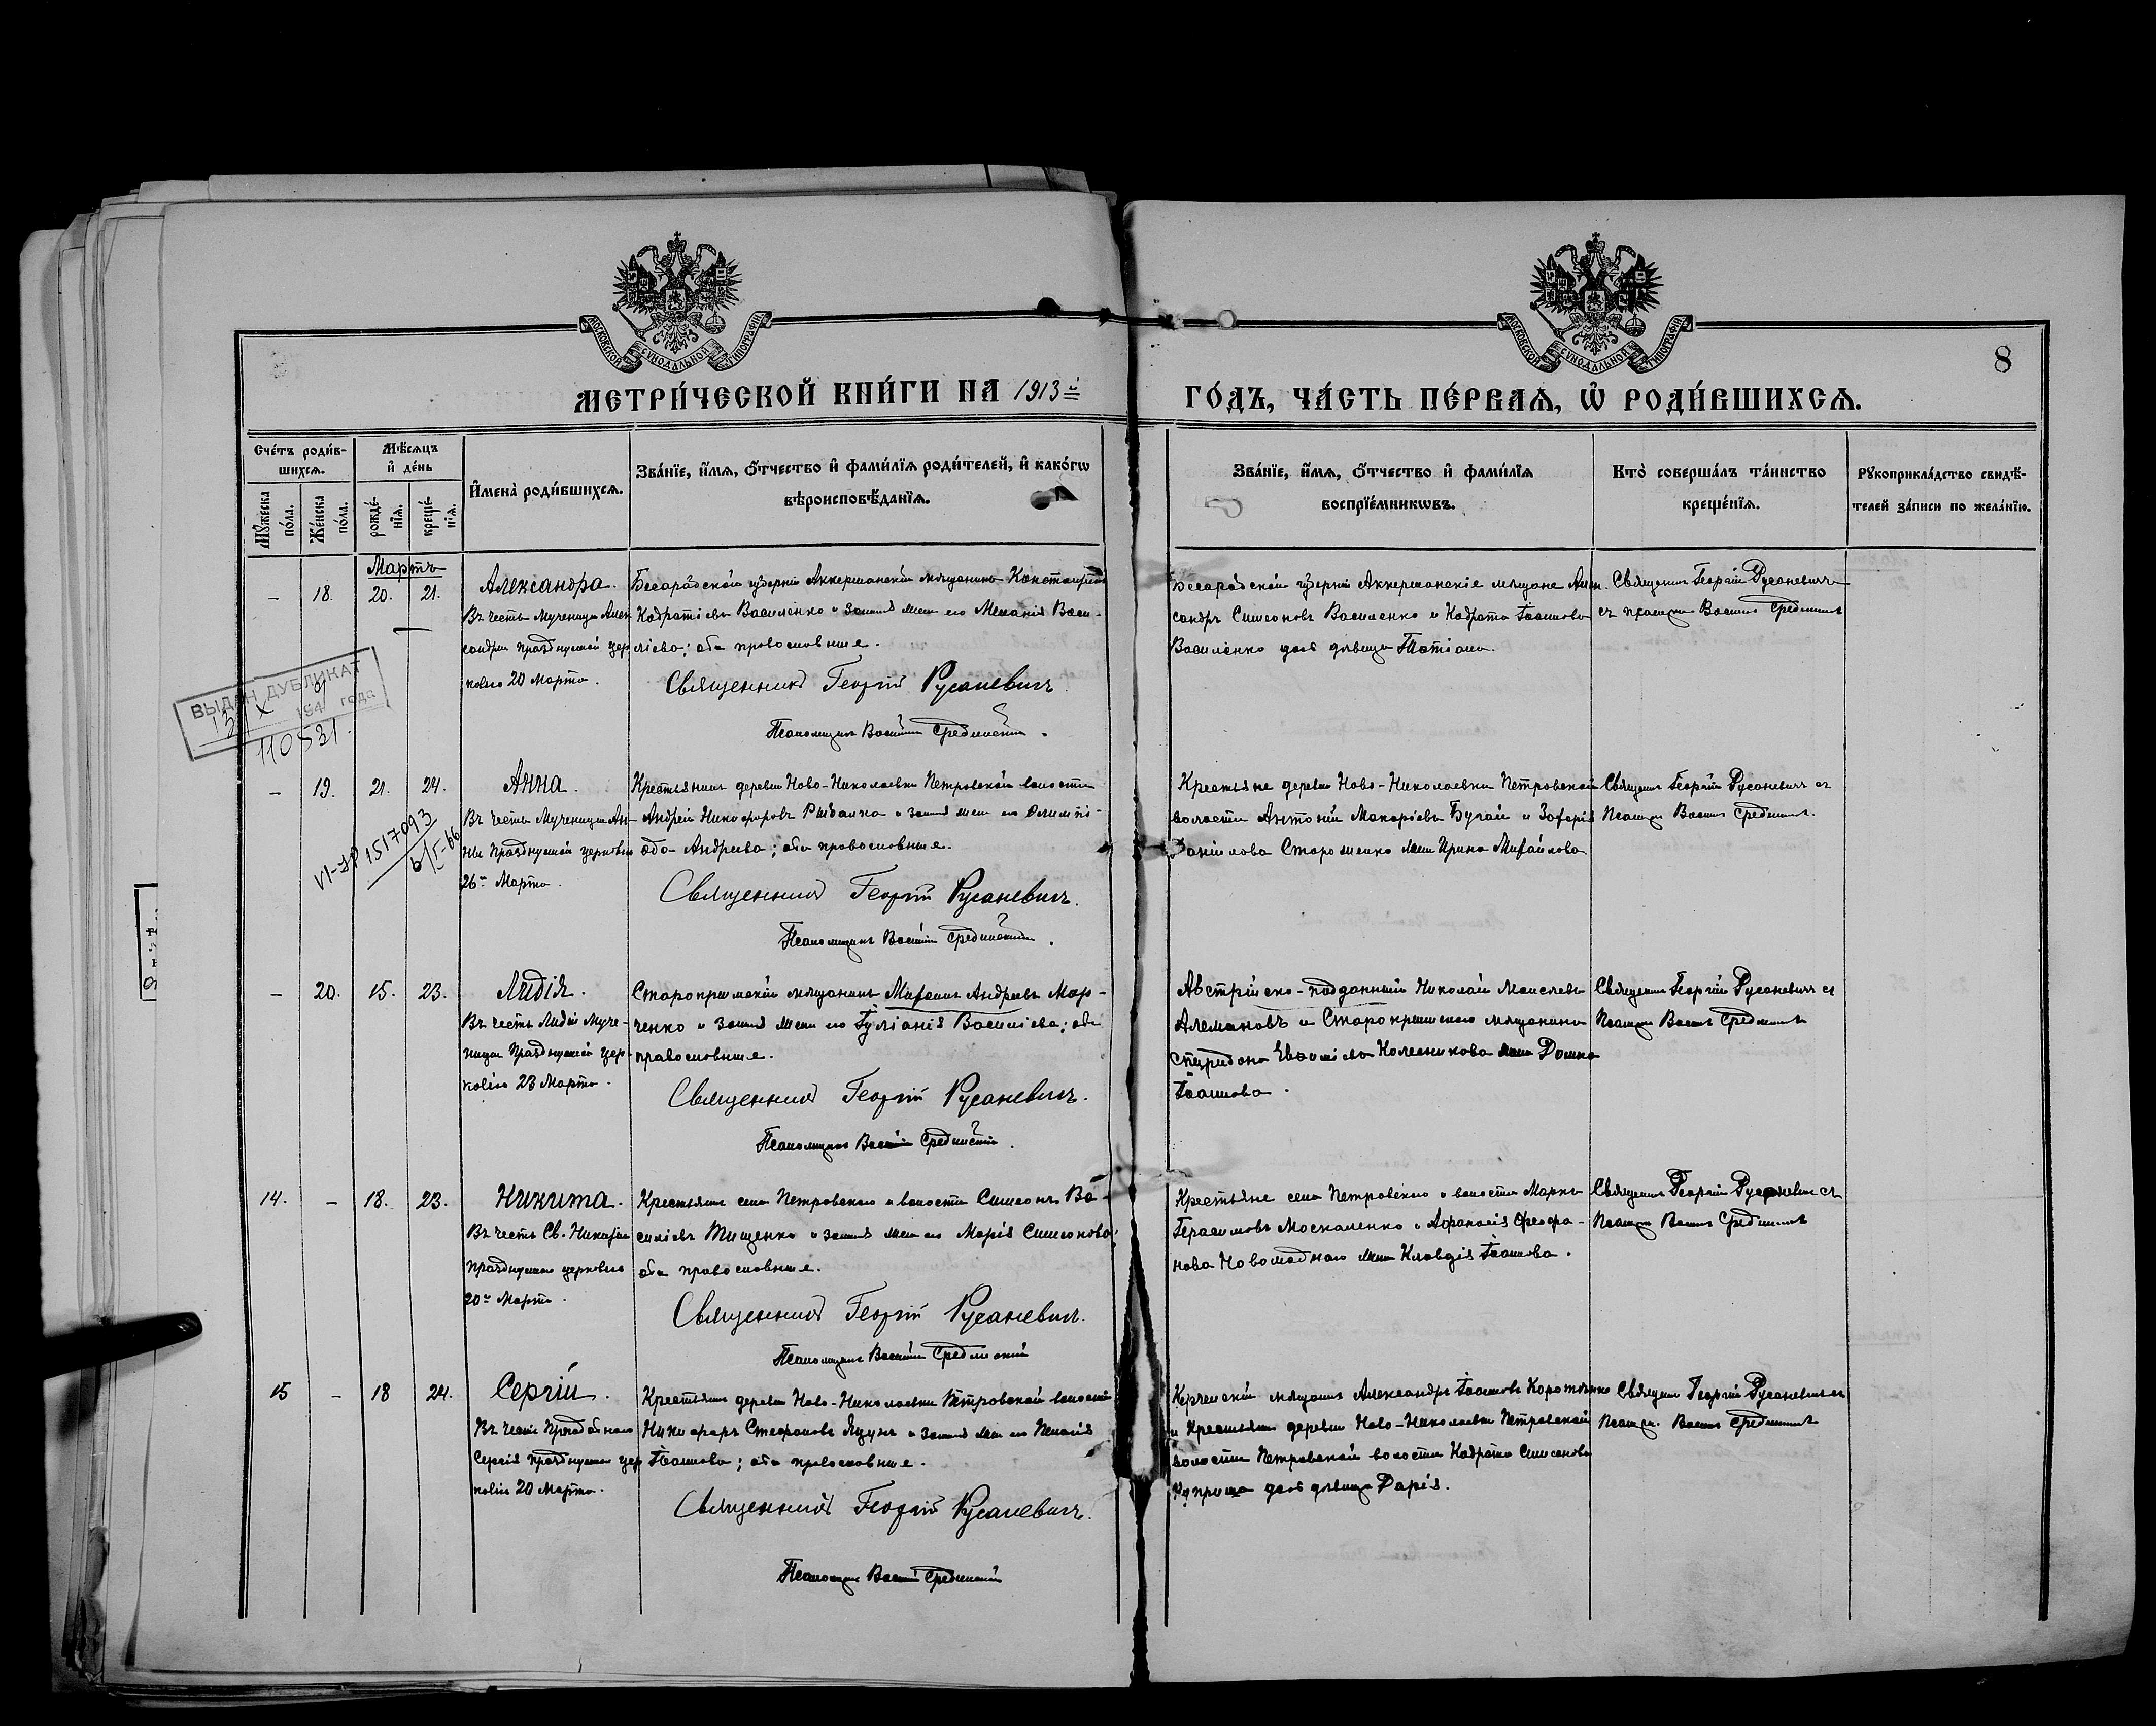 МОСКОВСКОЙ СѴНОДАЛЬНОЙ ТИПОГРАФІИ
МОСКОВСКОЙ СѴНОДАЛЬНОЙ ТИПОГРАФІИ
8
МЕТРИ́ЧЕСКОЙ КНИ́ГИ НА 1913й
ГО́ДЪ, ЧА́СТЬ ПЕ́РВАѦ, Ѡ РОДИ́ВШИХСѦ.
Сче́тъ роди́в-
шихсѧ.
Мѣ́сѧцъ
и҆ де́нь
Мꙋ́жеска по́ла.
Же́нска по́ла.
рожде́-
нїѧ.
креще́-
нїѧ.
И҆мена̀ роди́вшихсѧ.
Зва́нїе, и҆́мѧ, ѻ҆́тчество и҆ фами́лїѧ роди́телей, и҆ како́гѡ
вѣроисповѣ́данїѧ.
Зва́нїе, и҆́мѧ, ѻ҆́тчество и҆ фами́лїѧ
воспрїе́мникѡвъ.
Кто̀ соверша́лъ та́инство
креще́нїѧ.
Рꙋкоприкла́дство свидѣ́-
телей за́писи по жела́нїю.
Мартъ
– 18. 20. 21.
Александра.
Въ честь Мученицы Алек-
сандры празднуемой цер-
ковью 20 Марта.
Бесарабской губерніи Аккерманскій мѣщанинъ Константинъ
Кодратіевъ Василенко и законная жена его Меланія Васи-
ліева; оба православные.
Священникъ Георгій Русаневичъ
Псаломщикъ Василій Срединскій.
Бесарабской губерніи Аккерманскіе мѣщане Алек-
сандръ Симеоновъ Василенко и Кодрата Іоаннова
Василенко дочь дѣвица Татіана.
Священникъ Георгій Русаневичъ
съ псаломщ. Василіемъ Срединскимъ
ВЫДАН ДУБЛИКАТ
13 X 194 года
110531.
– 19. 21. 24.
Анна.
Въ честь Мученицы Ан-
ны празднуемой церковью
26го Марта.
Крестьянинъ деревни Ново-Николаевки Петровской волости
Андрей Никифоровъ Рыбалка и законная жена его Олимпі-
ада Андреева; оба православные.
Священникъ Георгій Русаневичъ.
Псаломщикъ Василій Срединскій.
Крестьяне деревни Ново-Николаевки Петровской
волости Антоній Макаріевъ Бугай и Захарія
Даніилова Стороженко жена Ирина Михайлова
Священникъ Георгій Русаневичъ съ
Псаломщ. Василіемъ Срединскимъ.
VI-ЯР 1517093
6/II-66
– 20. 15. 23.
Лидія.
Въ честь Лидіи Муче-
ницы празднуемой цер-
ковью 23 Марта.
Старокрымскій мѣщанинъ Михаилъ Андреевъ Мар-
ченко и законная жена его Іуліанія Василіева; оба
православные.
Священникъ Георгій Русаневичъ.
Псаломщикъ Василій Срединскій.
Австрійско-подданный Николай Моисеевъ
Алемановъ и Старокрымскаго мѣщанина
Спиридона Евѳиміева Колесникова жена Домна
Іоаннова.
Священникъ Георгій Русаневичъ съ
Псаломщ. Василіемъ Срединскимъ
14. – 18. 23.
Никита.
Въ честь Св. Никиты
празднуемаго церковью
20го Марта.
Крестьянинъ села Петровскаго и волости Симеонъ Ва-
силіевъ Тищенко и законная жена его Марія Симеонова;
оба православные.
Священникъ Георгій Русаневичъ.
Псаломщикъ Василій Срединскій
Крестьяне села Петровскаго и волости Маркъ
Герасимовъ Москаленко и Аѳанасія Ѳеофа-
нова Новохатнаго жена Клавдія Іоаннова.
Священникъ Георгій Русаневичъ съ
Псаломщ. Василіемъ Срединскимъ
15 – 18 24.
Сергій.
Въ честь Преподобнаго
Сергія празднуемаго цер-
ковью 20 Марта.
Крестьянинъ деревни Ново-Николаевки Петровской волости
Никифоръ Стефановъ Яцунъ и законная жена его Пелагія
Іоаннова; оба православные.
Священникъ Георгій Русаневичъ.
Псаломщикъ Василій Срединскій
Керченскій мѣщанинъ Александръ Іоанновъ Коротенко
и Крестьянина деревни Ново-Николаевки Петровской
волости Петровской волости Кодрата Симеонова
дочь дѣвица Дарія.
Священникъ Георгій Русаневичъ съ
Псаломщ. Василіемъ Срединскимъ